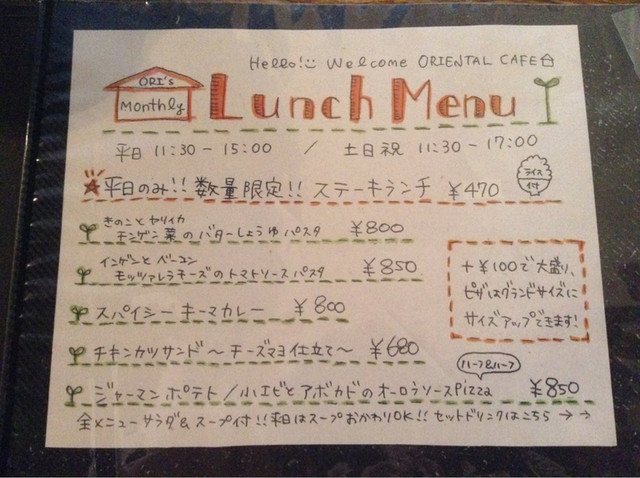 Hello! Welcome ORIENTAL CAFE
ORI's
Monthly
Lunch Menu
平日 11:30-15:00 / 土日祝 11:30-17:00
平日のみ!! 数量限定!! ステーキランチ ¥470
ライス付
きのことヤリイカ
チンゲン菜のバターしょうゆパスタ ¥800
インゲンとベーコン
モッツァレラチーズのトマトソースパスタ ¥850
スパイシーキーマカレー ¥800
チキンカツサンド〜チーズマヨ仕立て〜 ¥680
+¥100で大盛り、
ピザはグランドサイズに
サイズアップできます!
ハーフ&ハーフ
ジャーマンポテト/小エビとアボカドのオーロラソースPizza ¥850
全メニューサラダ&スープ付!! 平日はスープおかわりOK!! セットドリンクはこちら→→